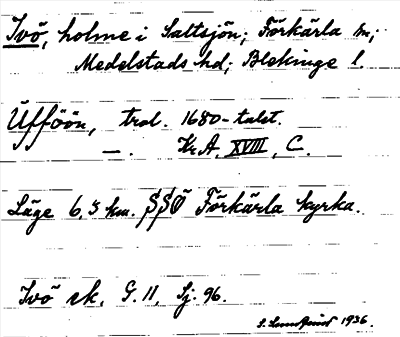 Ivö, holme i Saltsjön; Förkärla sn;
Medelstads hd; Blekinge l.
Üfföön, trol. 1680-talet.
—. Kr.A. XVIII, C.
Läge 6,5 km. SSÖ Förkärla kyrka.
Ivö sk. G. 11, Sj. 96.
1936.